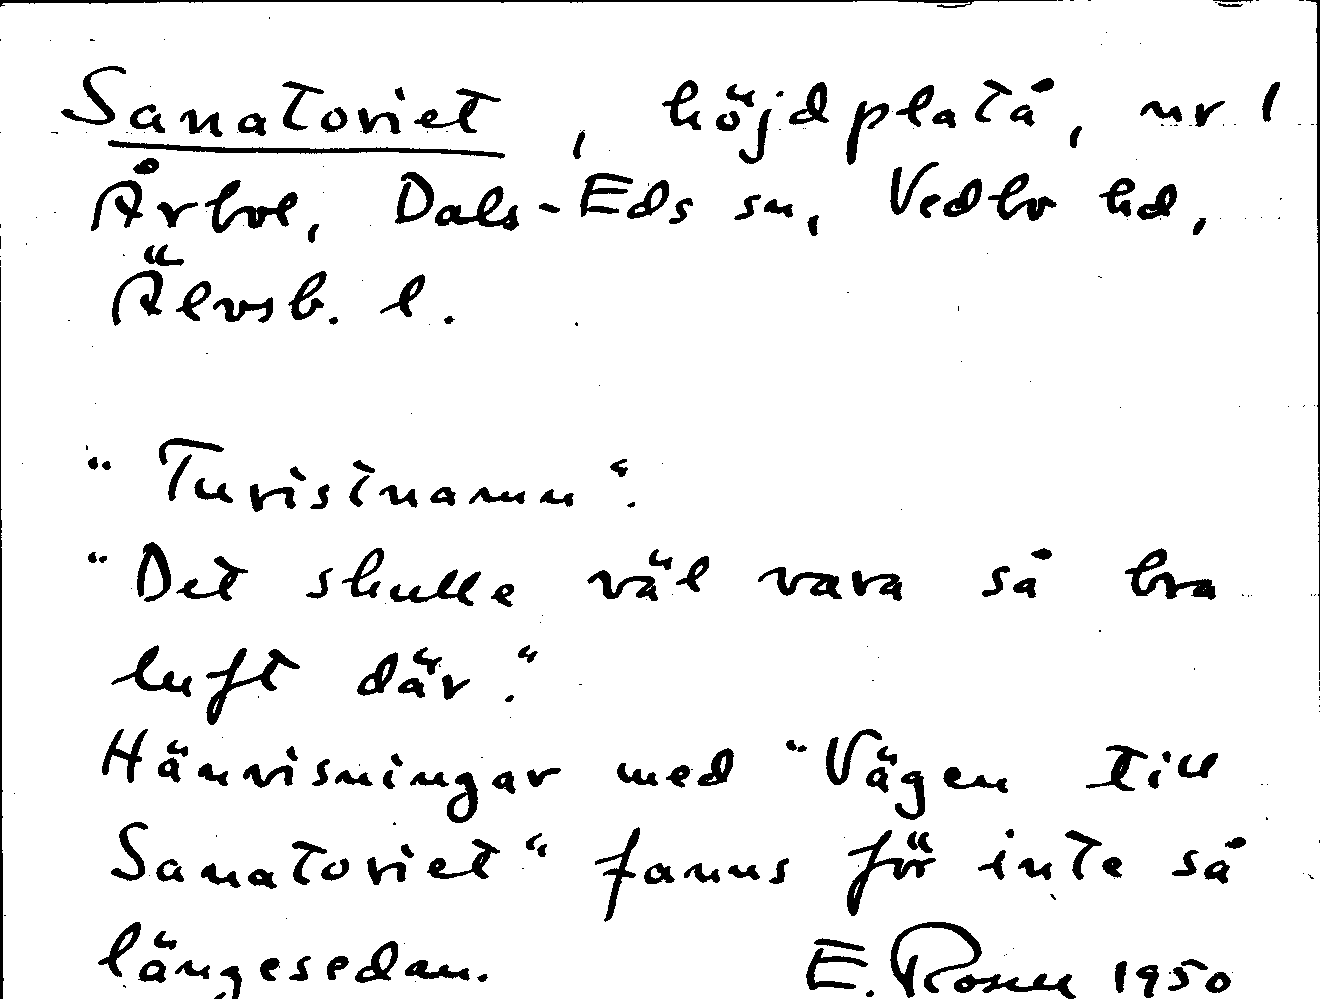 Sanatoriet, höjdplatå, nr 1
Årbol, Dals-Eds sn, Vedbo hd,
Älvsb. l.
"Turistnamn".
"Det skulle väl vara så bra
luft där."
Hänvisningar med "Vägen till
Sanatoriet" fanns för inte så
längesedan. E. Rosell 1950